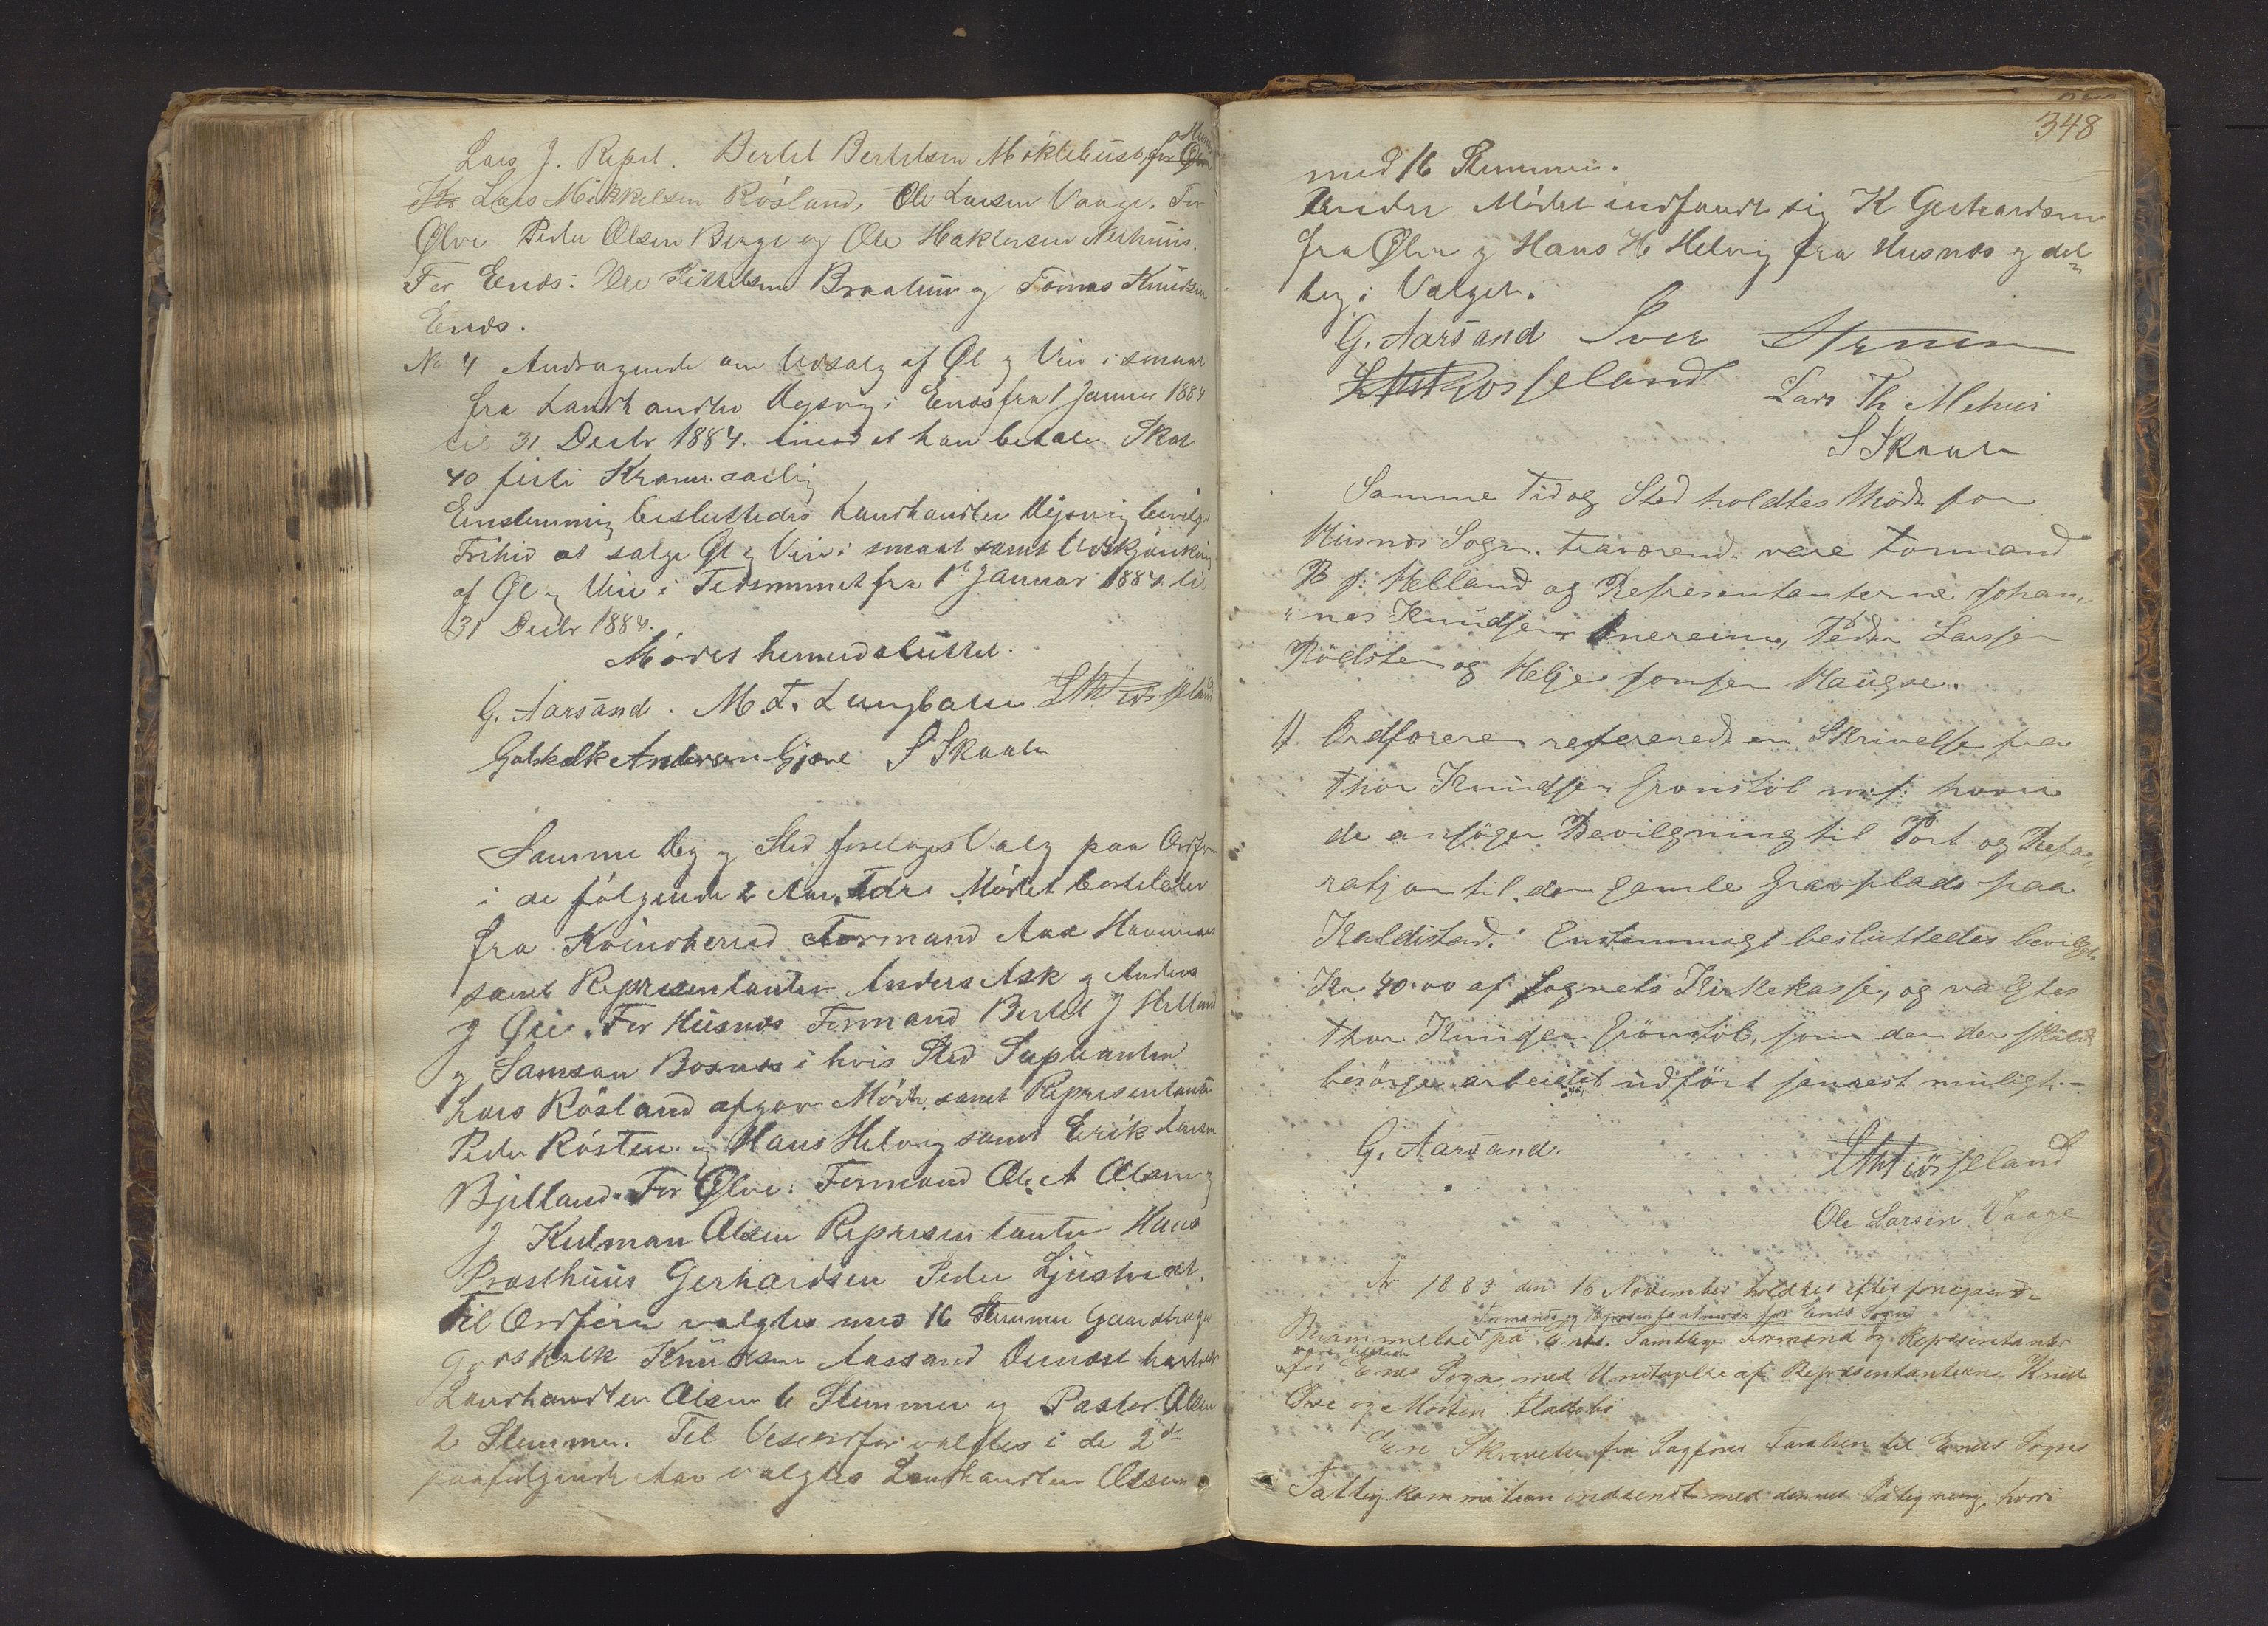 Lars J. Repel. Bertel Bertelsen Möklebust, for Husnes
Lars Mikkelsen Rösland, Ole Larsen Vaage. For
Ølve Peder Olsen Berge og Ole Haktorsen Nerhuus.
For Enæs: Ole Tittelsen Braatun og Tomas Knudsen
Enæs.
No 4 Andragende om Udsalg af Øl og Vin i smaat
fra Landhandler i Enæs fra 1 Januar 1884
til 31 Decbr 1884. imod at han betaler Skat
40 firti Kroner aarlig
Enstemmig besluttedes Landhandler bevilget
Frihed at sælge Øl og Vin i smaat samt Udskjænkning
af Øl og Vin i Tidsrummet fra 1ste Januar 1884 til
31 Decbr 1884.
Mödet hermed sluttet.
G. Aarsand. M. T. Ljungbalm
Gotskalk Andersen Gjere S Skaala
Samme Dag og Sted foretoges Valg paa Ordfører
i de fölgende 2 Aar. Til Mödet
fra Kvindherred Formand Aase
samt Repræsentanter Anders Ask og Anders
J Øie. For Husnæs Formand Bertel J Helland
og Samson Bosnæs i hvis Sted Supleanten
Lars Rösland afgav Möde samt Repræsentanter
Peder Rösten og Hans Helvig samt Erik Larsen
Bjelland. For Ølve: Formand Ole A Olsen og
J Kulman Olsen Repræsentanter Hans
Præsthuus Gerhardsen Peder
Til Ordfører valgtes med 16 Stemmer Gaardbruger
Gotskalk Knudsen Aarsand Dernæst havde
Landhandler Olsen 6 Stemmer og Pastor Olsen
2 Stemmer. Til Viseordfør valgtes i de 2de
paafølgende Aar valgtes Landhandler Olsen
348
med 16 Stemmer.
Under Mödet indfandt sig K Gerhardsen
fra Ølve og Hans H Helvig fra Husnæs og del-
tog i Valget.
G. Aarsand Iver
Lars Th Mehus
S Skaala
Samme Tid og Sted holdtes Möde for
Husnæs Sogn. Tilværende vare Formand
B J. Helland og Repræsentanterne Johan-
"nes Knudsen, Peder Larsen
Rödsten og Helje Jonsen Haugse.
1). Ordföreren refererede en Skrivelse fra
Thor Knudsen Grönstöl m. f. hvori
de ansöger Bevilgning til Port og Repa-
ratjon til den gamle Gravplads paa
Kaldestad. Enstemmigt besluttedes bevilget
Kr 40.00 af Sognets Kirkekasse, og valgtes
Thor Knudsen Grönstöl, som den der skulde
besörge arbeidet udfört snarest muligt. –
G. Aarsand.
Ole Larsen Vaage
År 1883 den 16 November holdtes efter foregaaende
Formands og Repræsentantmöde for Enæs Sogn
Berammelse på Enæs. Samtlige Formænd og Repræsentanter
for Enæs Sogn med Undtagelse af Repræsentanterne Knud
Øvre og Morten Fladabö
En Skrivelse fra Sagfører til Enæs Sogns
Fattigkommition indsendt med dennes Påtegning, hvori